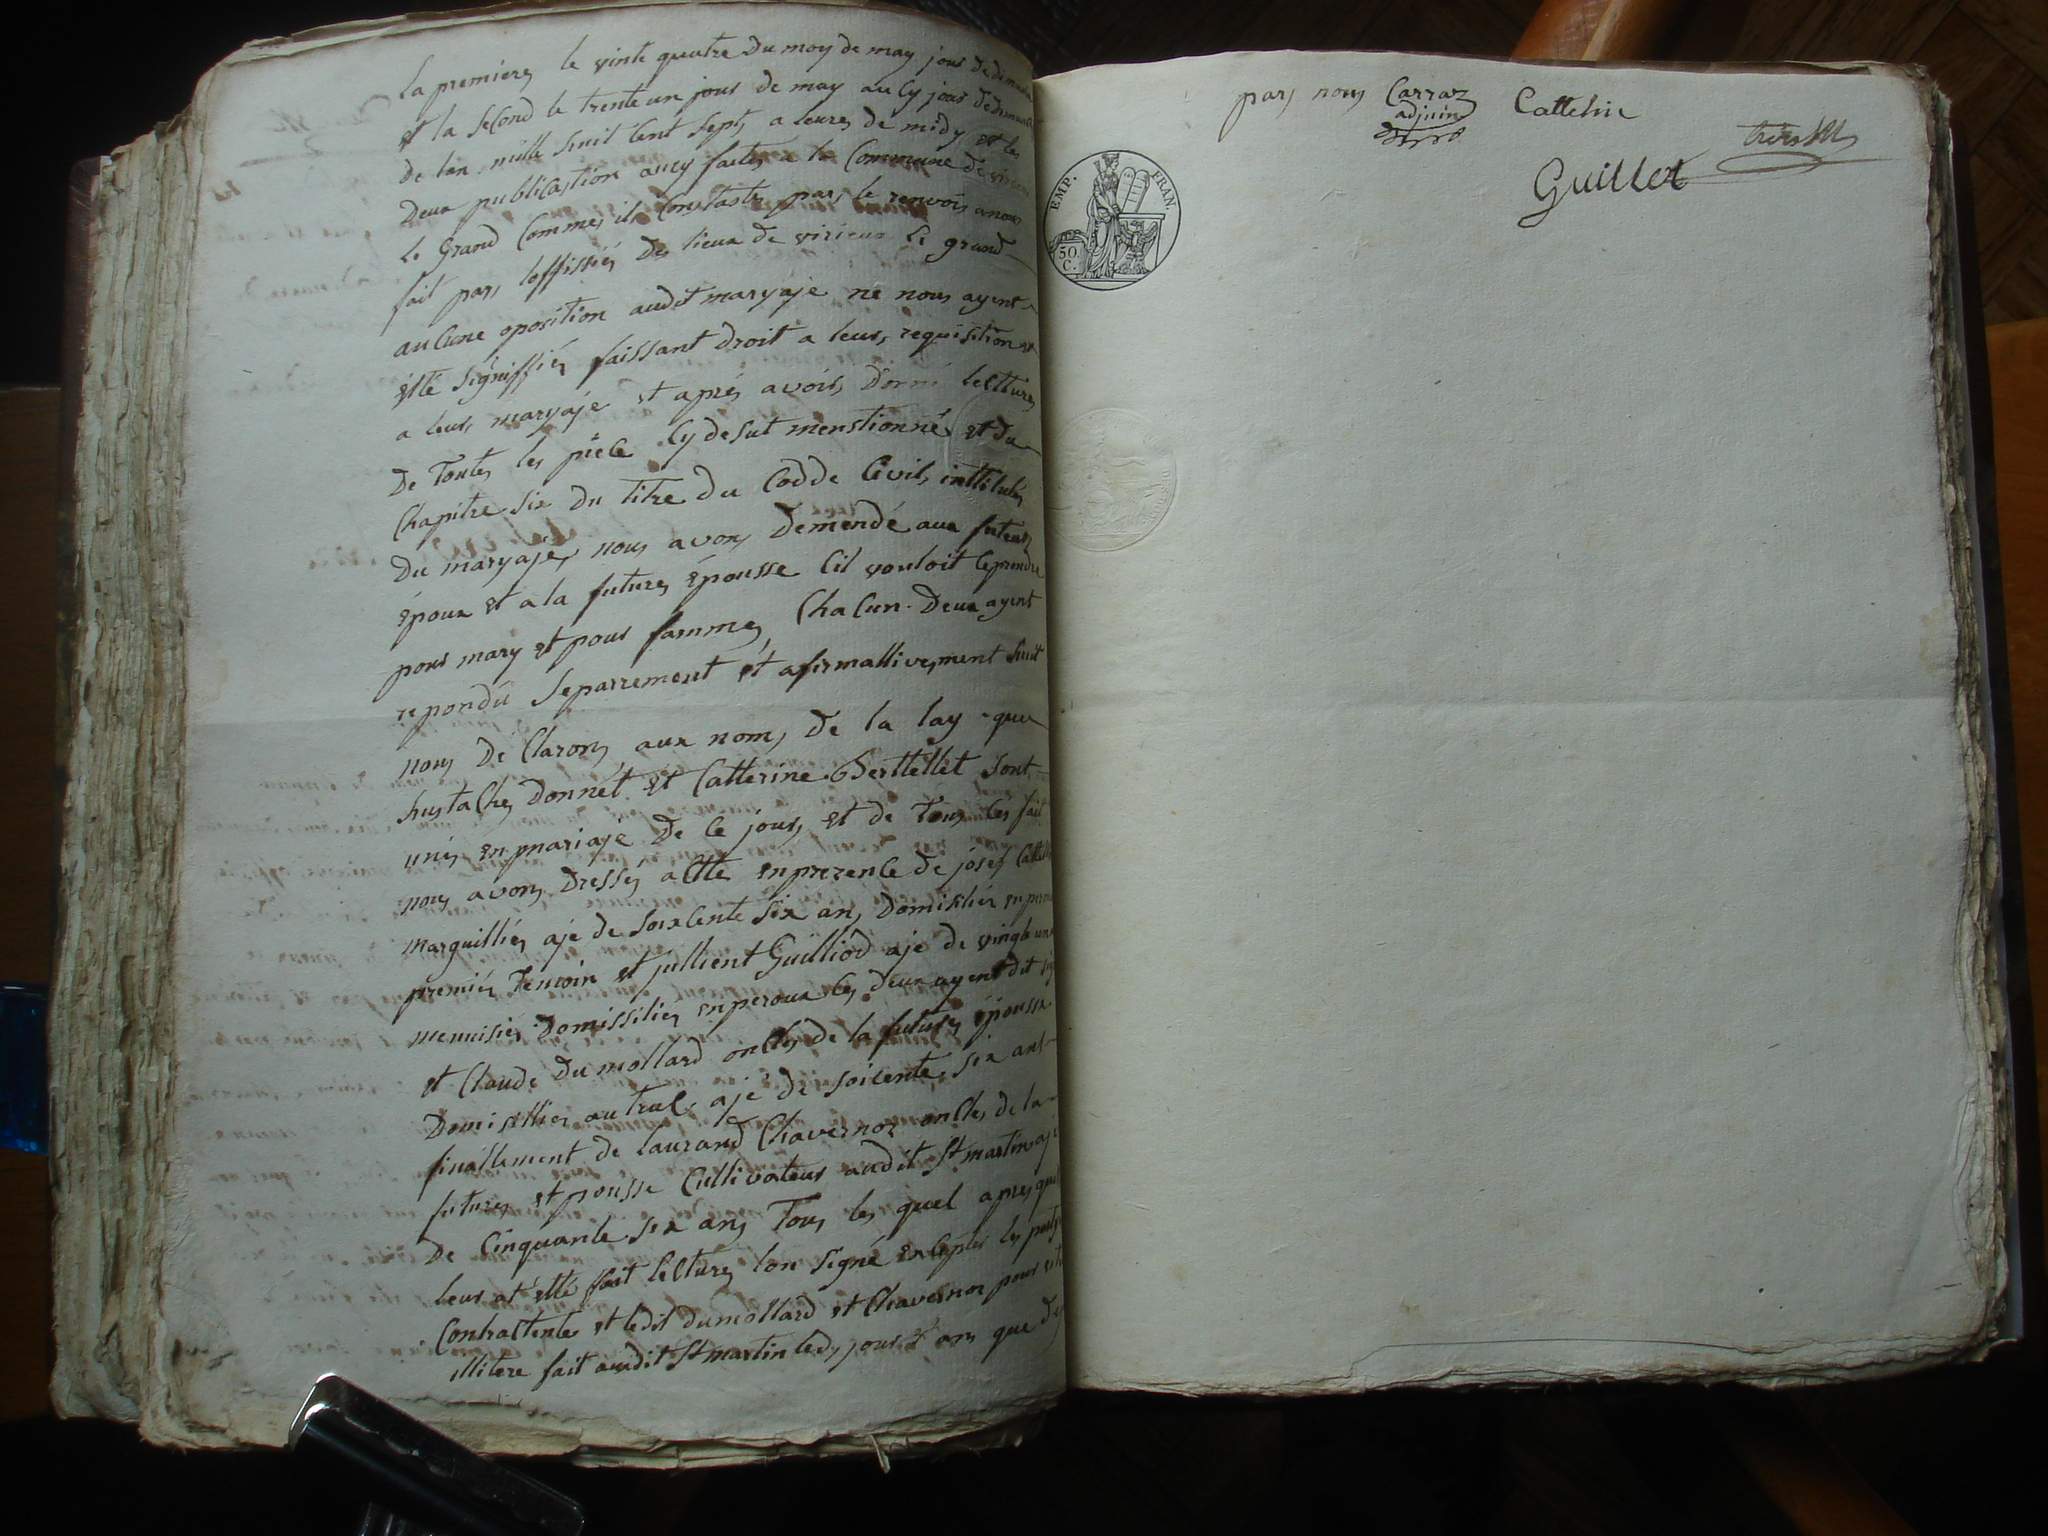 la premiere, le vinte quatre du moy de may jour de dimanche
et la second le trente un jour de may aucy jour de dimanche
de lan mille huit cent sept, a leure, de midy et les
deux publication aucy faites a la Commune de virieu
le Grand Comme, il Constaste par, le renvois a nous
fait par, loffissier, des lieux de virieux le grand
auCune oposition audit maryaje ne nous ayent
etté signiffiér, faissant droit a leur, requisition
a leur, maryaje et aprés avoir, donné lectture,
de toutes les piéce Cy desut menstionné et du
Chapitre six du titre du Codde Civil, inttitulés
du maryaje, nous avons demendé aux future
époux et a la future, épousse Cil vouloit Ce prendre
pour mary et pour famme, ChaCun deux ayent
repondû separrement et afirmattivement
nous de Clarons aux nom, de la lay que
hustaChe, donnét et Catterine Berttellet sont
unis en mariaje de Ce jour, et de tous Ces fait
nous avons dressés actte en prezence de josef
marguillier, ajé de soixcente six an, domisilier
premier, temoin et jullient Guilliod aje de vingt un
menuisier, domissilier, en peroux les deux ayent dit
et Claude dumollard oncle de la future, épousse
domisillier au trul, ajé de soicente, six ant
finallement de laurand Chavernoz oncle, de la
future, et pousse Cullivateur audit St martin ajé
de Cinquante six ans tous les quel apres que
leur at etté fait lecture, lon signé excepter les
Contractente et ledit dumollard et Chavernoz pour
illitere fait audit St martin les jour et ans que
par, nous Carraz Cattelin
adjoint
Guillot
EMP. FRAN.
50 C.